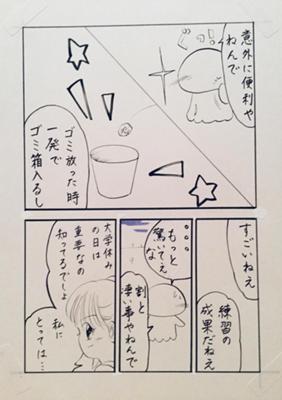 意外に便利や
ねんで
ゴミ放った時
一発で
ゴミ箱入るし
すごいねえ
練習の
成果だねえ
もっと
驚いてぇ
な
割と
凄い事やねんで
大学休み
の日は
重要なの
知ってるでしょ
私に
とっては…